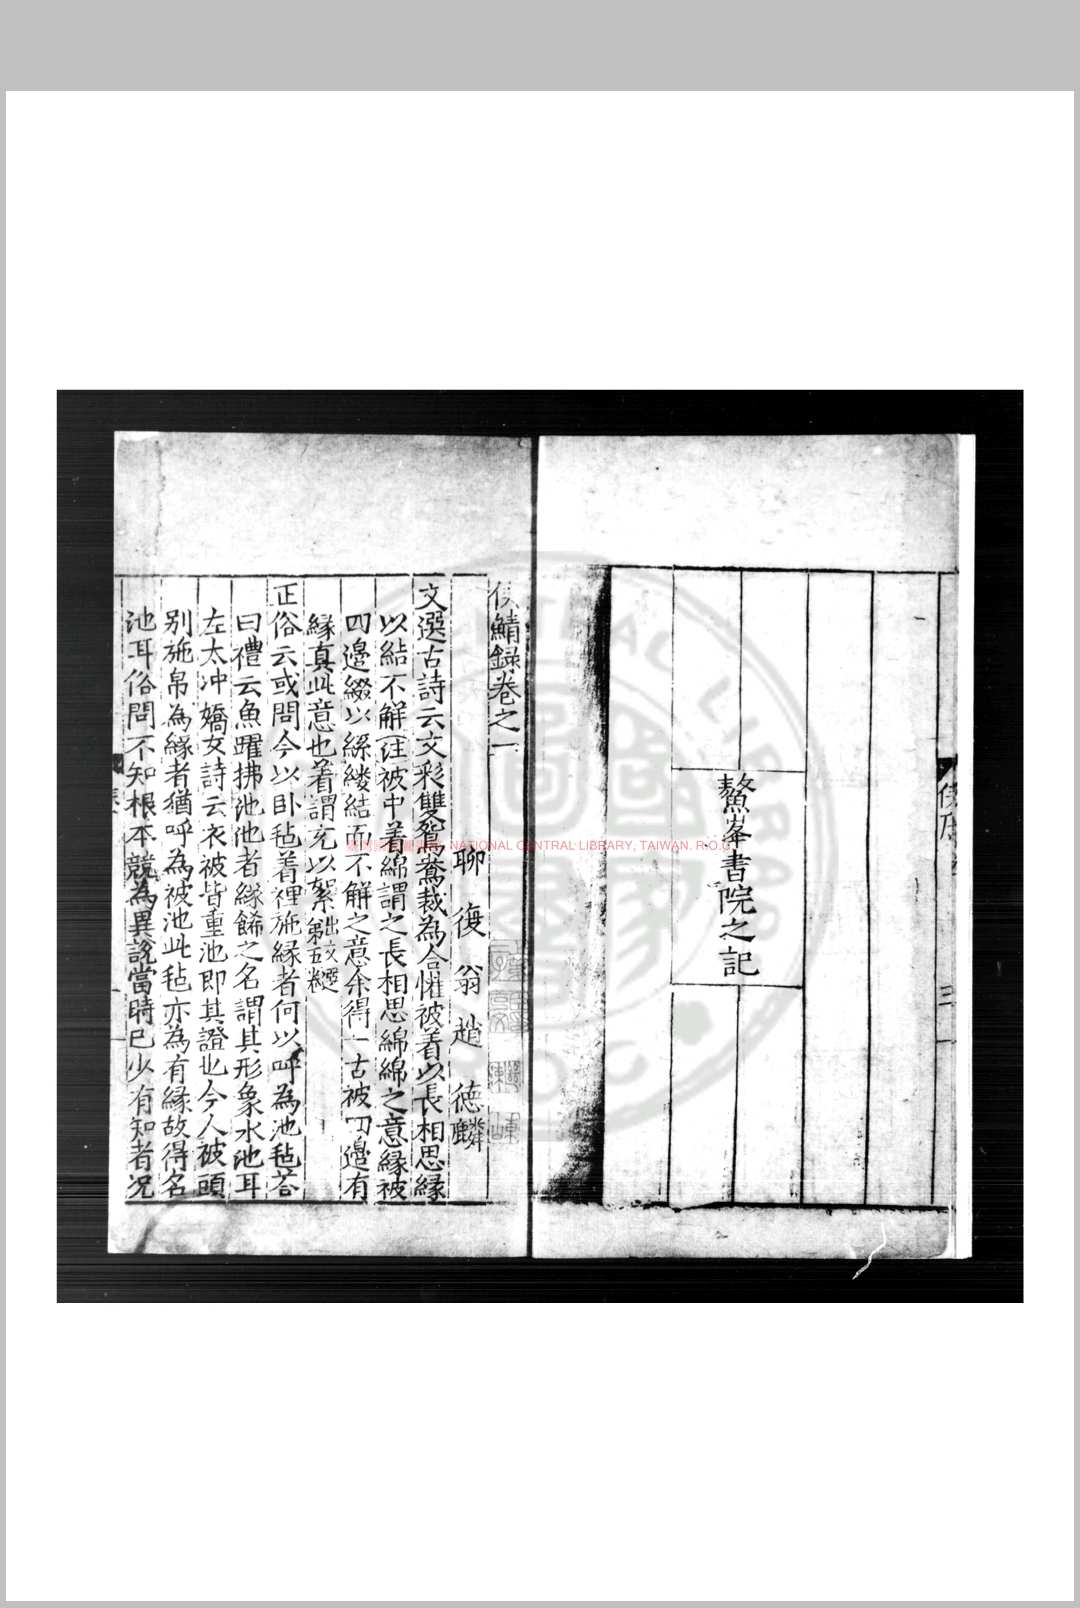 侯序
三
鰲峯書院之記
侯鯖録卷之一
聊復翁趙德麟
文選古詩云文彩雙鴛鴦裁為合懽被着以長相思縁
以結不解注被中着綿謂之長相思綿綿之意縁被
四邊綴以絲縷結而不解之意余得一古被四邊有
縁真此意也着謂充以絮出文選第五卷
正俗云或問今以卧毡着裡施縁者何以呼為池毡荅
曰禮云魚躍拂池池者縁餙之名謂其形象水池耳
左太冲嬌女詩云衣被皆重池即其證也今人被頭
别施帛為縁者猶呼為被池此毡亦為有縁故得名
池耳俗間不知根本競為異說當時已少有知者况
NATIONAL CENTRAL LIBRARY, TAIWAN. R.O.C.